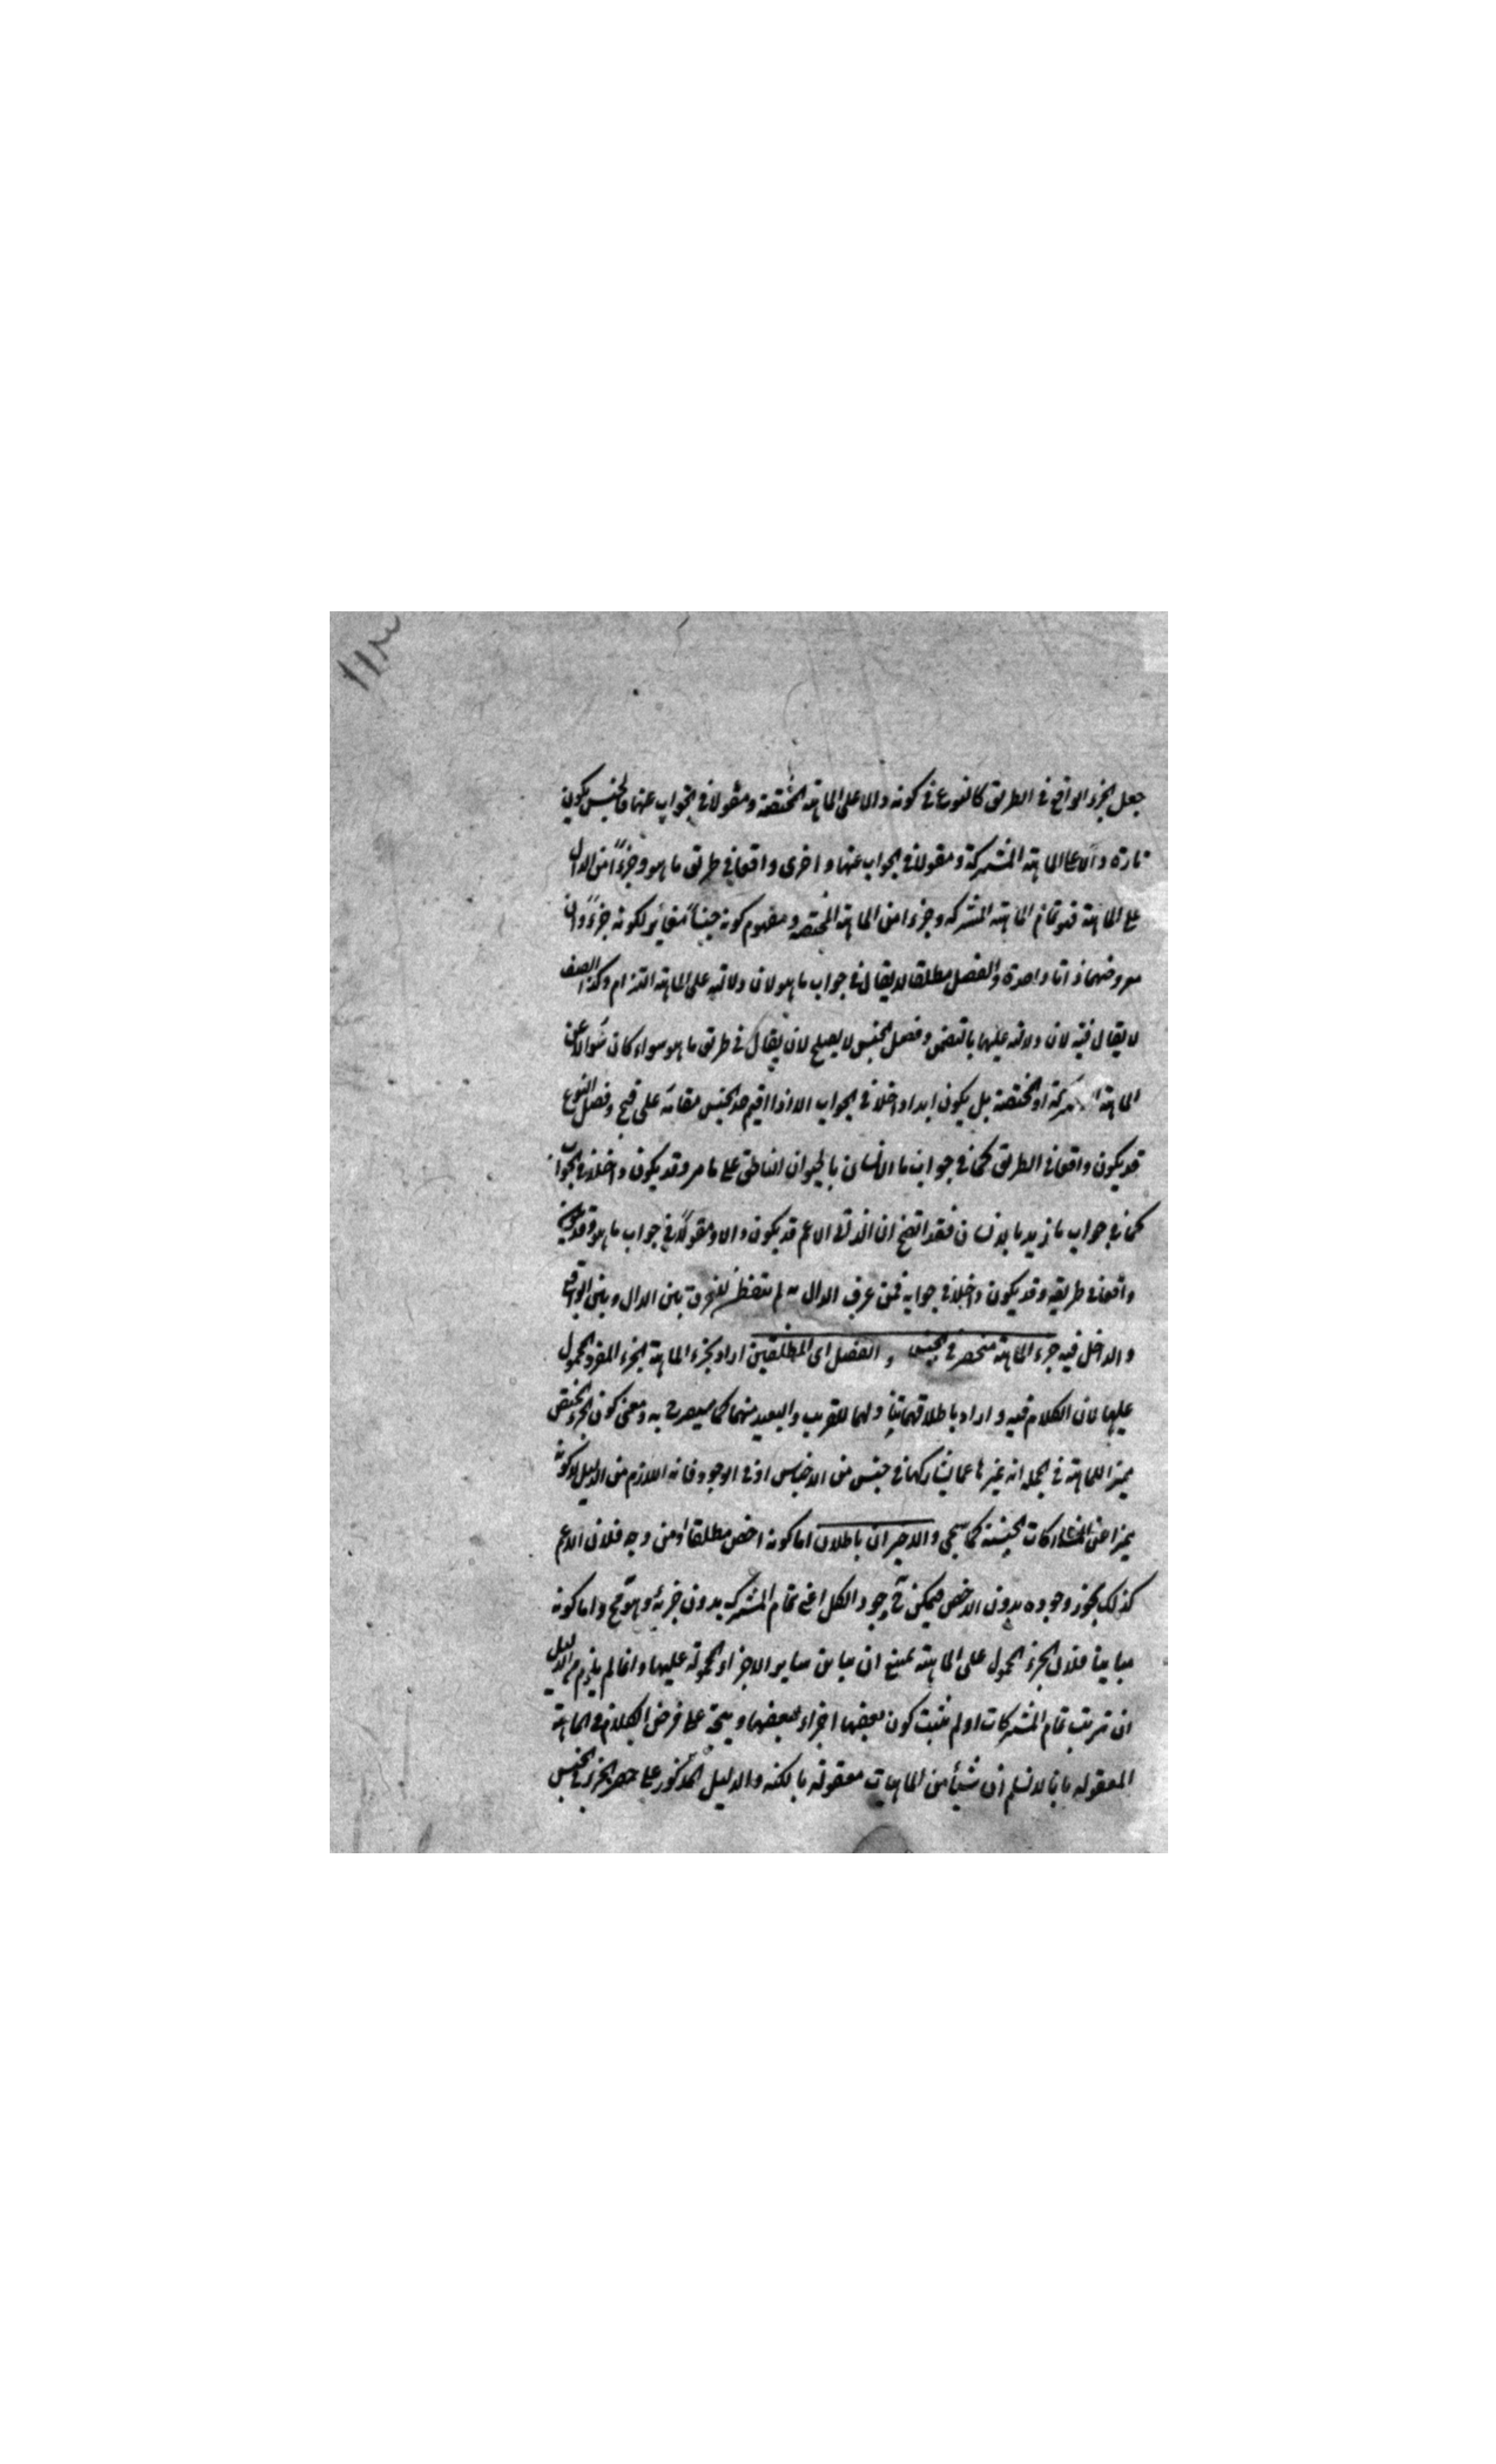 ١١٣
جعل الجزء الواقع في الطريق كالنوع في كونه دالا على الماهية المختصة ومقولا في الجواب عنها والجنس يكون
تارة دالا على الماهية المشتركة ومقولا في الجواب عنها واخرى واقعا في طريق ما هو وجزءًا من الدال
على الماهية فهو تمام الماهية المشتركة وجزءا من الماهية المختصة ومفهوم كونه جنسًا مغاير لكونه جزءًا وان
معروضهما ذاتا واحدة والفصل مطلقا لا يقال في جواب ما هو لان دلالته على الماهية التزام وكذا الصنف
لا يقال فيه لان دلالته عليها بالتضمن وفصل الجنس لا يصلح لان يقال في طريق ما هو سواء كان سؤالا عن
الماهية المشتركة او المختصة بل يكون ابدا داخلا في الجواب الا اذا اقيم حد الجنس مقامه على قبح وفصل النوع
قد يكون واقعا في الطريق كما في جواب ما الانسان بالحيوان الناطق على ما مر وقد يكون داخلا في الجواب
كما في جواب ما زيد بالانسان فقد اتضح ان الذاتي الاعم قد يكون دالا ومقولًا في جواب ما هو وقد يكون
واقعا في طريقه وقد يكون داخلا في جوابه فمن عرف الدال به لم يتفطن للفرق بين الدال وبين الواقع
والداخل فيه جزء الماهية منحصر في الجنس والفصل اى المطلقين اراد بجزء الماهية الجزء المفرد المحمول
عليها لان الكلام فيه واراد باطلاقهما تناولهما للقريب والبعيد منهما كما سيصرح به ومعنى كون الجزء المختص
مميزا للماهية في الجملة انه يميزها عما يشاركها في جنس من الاجناس او في الوجود فانه اللازم من الدليل لا كونه
مميزا عن المشاركات الجنسية كما سيجى والاخيران باطلان اما كونه اخص مطلقا او من وجه فلان الاعم
كذلك يجوز وجوده بدون الاخص فيمكن ح وجود الكل اعني تمام المشترك بدون جزئه وهو مح واما كونه
مباينا فلان الجزء المحمول على الماهية يمتنع ان يباين ساير الاجزاء المحمولة عليها وانما لم يلزم من الدليل
ان ترتب تمام المشتركات او لم يثبت كون بعضها اجزاء لبعضها ويتجه على فرض الكلام في الماهية
المعقوله بانا لا نسلم ان شيئًا من الماهيات معقولة بالكنه والدليل المذكور على حصر الجزء في الجنس